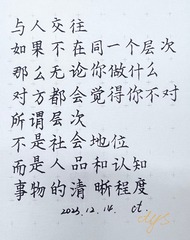 与人交往
如果不在同一个层次
那么无论你做什么
对方都会觉得你不对
所谓层次
不是社会地位
而是人品和认知
事物的清晰程度
2023.12.14. ct.